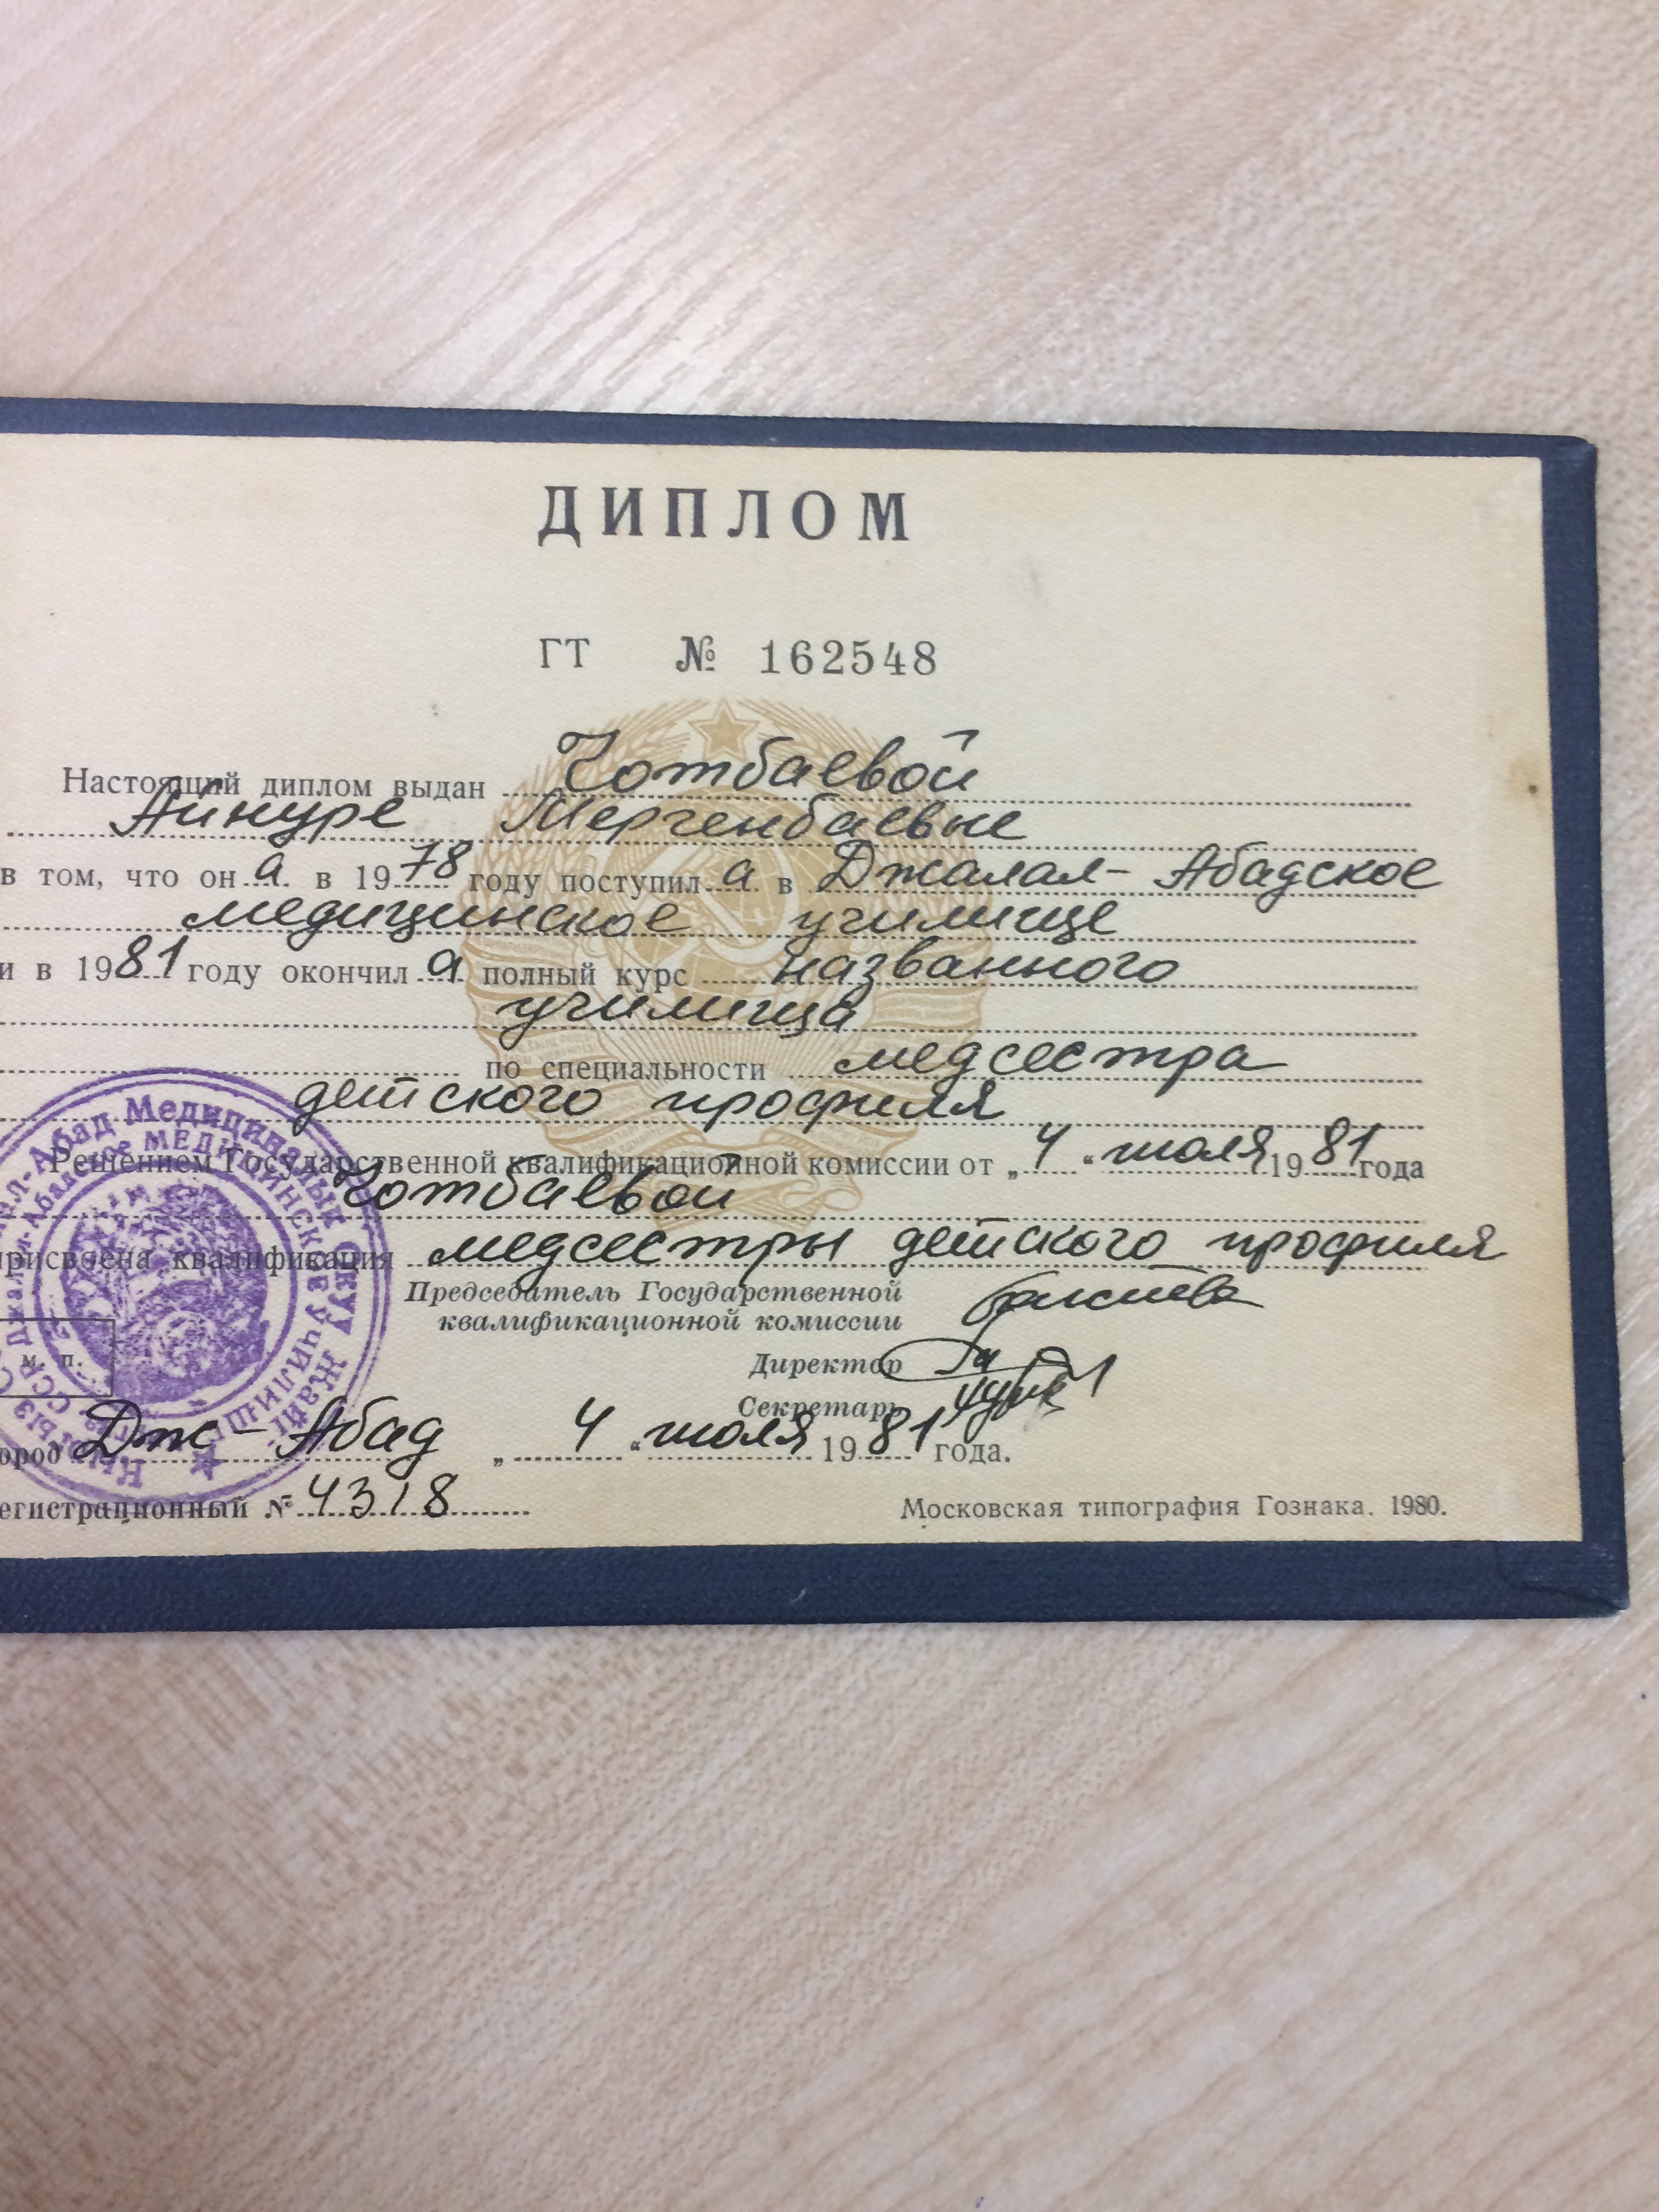 ДИПЛОМ
ГТ № 162548
Настоящий диплом выдан Чотбаевой
Айнуре Мергенбаевне
в том, что он а в 1978 году поступил а в Джалал-Абадское
медицинское училище
и в 1981 году окончил а полный курс названного
училища
по специальности медсестра
детского профиля
Решением Государственной квалификационной комиссии от „4“ июля 1981 года
Чотбаевой
присвоена квалификация медсестры детского профиля
Председатель Государственной
квалификационной комиссии
Директор
Секретарь
м. п.
ород Дж-Абад „4“ июля 1981 года.
егистрационный № 4318
Московская типография Гознака. 1980.